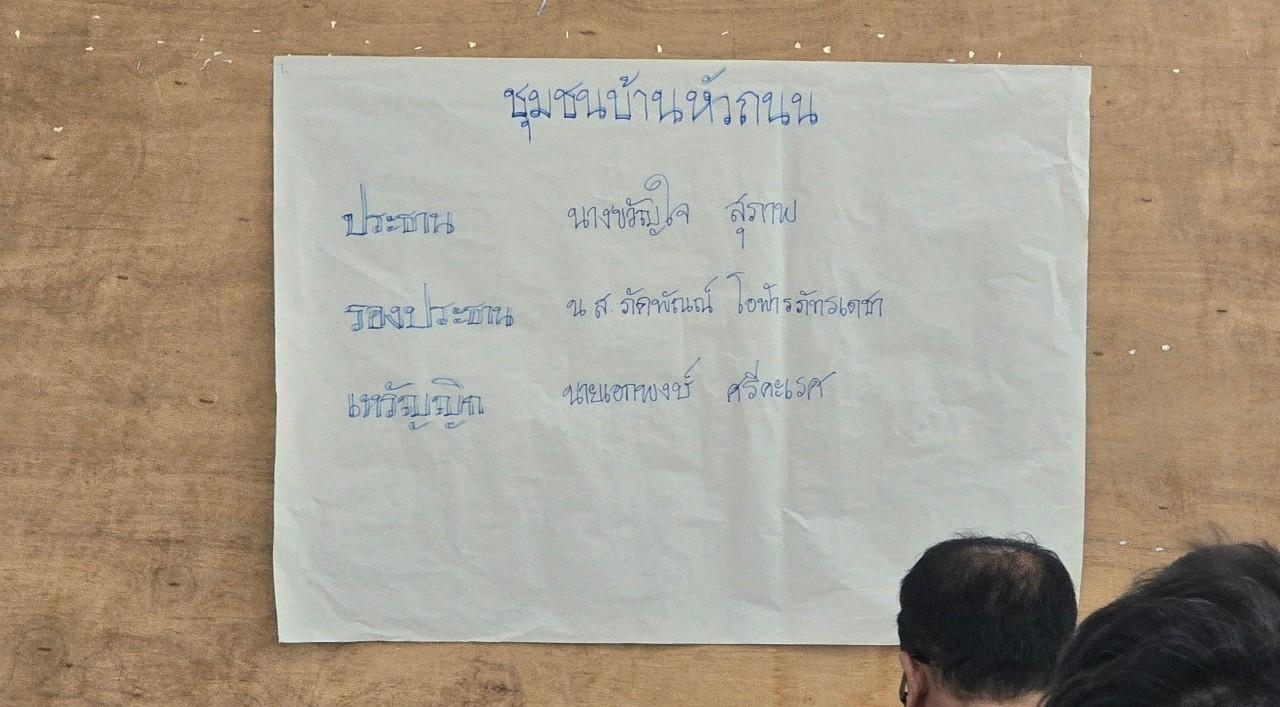 ชุมชนบ้านหัวถนน
ประธาน นางขวัญใจ สุภาพ
รองประธาน น.ส. ภัคพัณณ์ โอฬารภัทรเดชา
เหรัญญิก นายเอกพงษ์ ศรีคะเรศ